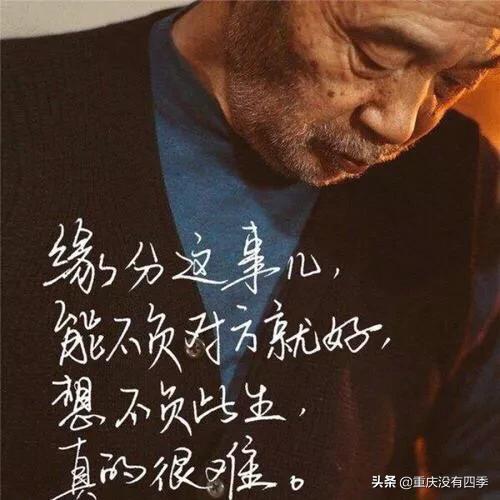 缘分这事儿，
能不负对方就好，
想不负此生，
真的很难。
头条 @重庆没有四季